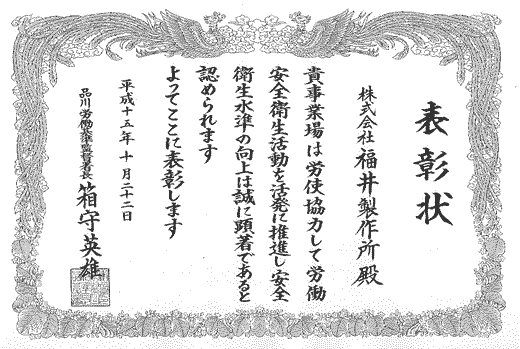 表彰状
株式会社 福井製作所 殿
貴事業場は労使協力して労働
安全衛生活動を活発に推進し安全
衛生水準の向上は誠に顕著であると
認められます
よってここに表彰します
平成十五年十月二十二日
品川労働基準監督署長 箱守英雄